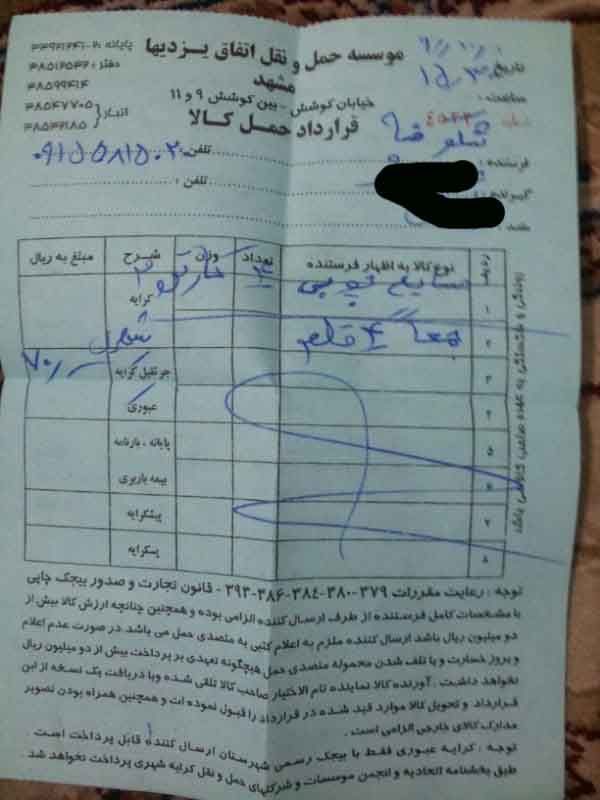 موسسه حمل و نقل اتفاق یزدیها
مشهد
خیابان کوشش - بین کوشش ۹ و ۱۱
قرارداد حمل کالا
پایانه:
دفتر: ۳۸۵۱۲۵۳۲
۳۸۵۹۹۴۱۴
انبار: ۳۸۵۴۷۷۰۵
۳۸۵۴۲۱۸۵
تاریخ
ساعت:
فرستنده:
تلفن: ۰۹۱۵۵۸۱۵۰۲۰
تلفن:
ردیف نوع کالا به اظهار فرستنده تعداد وزن شرح مبلغ به ریال
۱ صنایع چوبی ۴ کارتن کرایه
۲ جمعا ۴ قلم
۳ جرثقیل کرایه ۷۰/
۴ عبوری
۵ پایانه . بارنامه
۶ بیمه باربری
۷ پیشکرایه
۸ پسکرایه
توجه : رعایت مقررات ۳۷۹-۳۸۰-۳۸۴-۳۸۶-۳۹۳ - قانون تجارت و صدور بیجک چاپی
با مشخصات کامل فرستنده از طرف ارسال کننده الزامی بوده و همچنین چنانچه ارزش کالا بیش از
دو میلیون ریال باشد ارسال کننده ملزم به اعلام کتبی به متصدی حمل می باشد در صورت عدم اعلام
و بروز خسارت و یا تلف شدن محموله متصدی حمل هیچگونه تعهدی بر پرداخت بیش از دو میلیون ریال
نخواهد داشت . آورنده کالا نماینده تام الاختیار صاحب کالا تلقی شده وبا دریافت یک نسخه از این
قرارداد و تحویل کالا موارد قید شده در قرارداد را قبول نموده است و همچنین همراه بودن تصویر
مدارک کالای خارجی الزامی است .
توجه : کرایه عبوری فقط با بیجک رسمی شهرستان ارسال کننده قابل پرداخت است .
طبق بخشنامه اتحادیه و انجمن موسسات و شرکتهای حمل و نقل کرایه شهری پرداخت نخواهد شد .